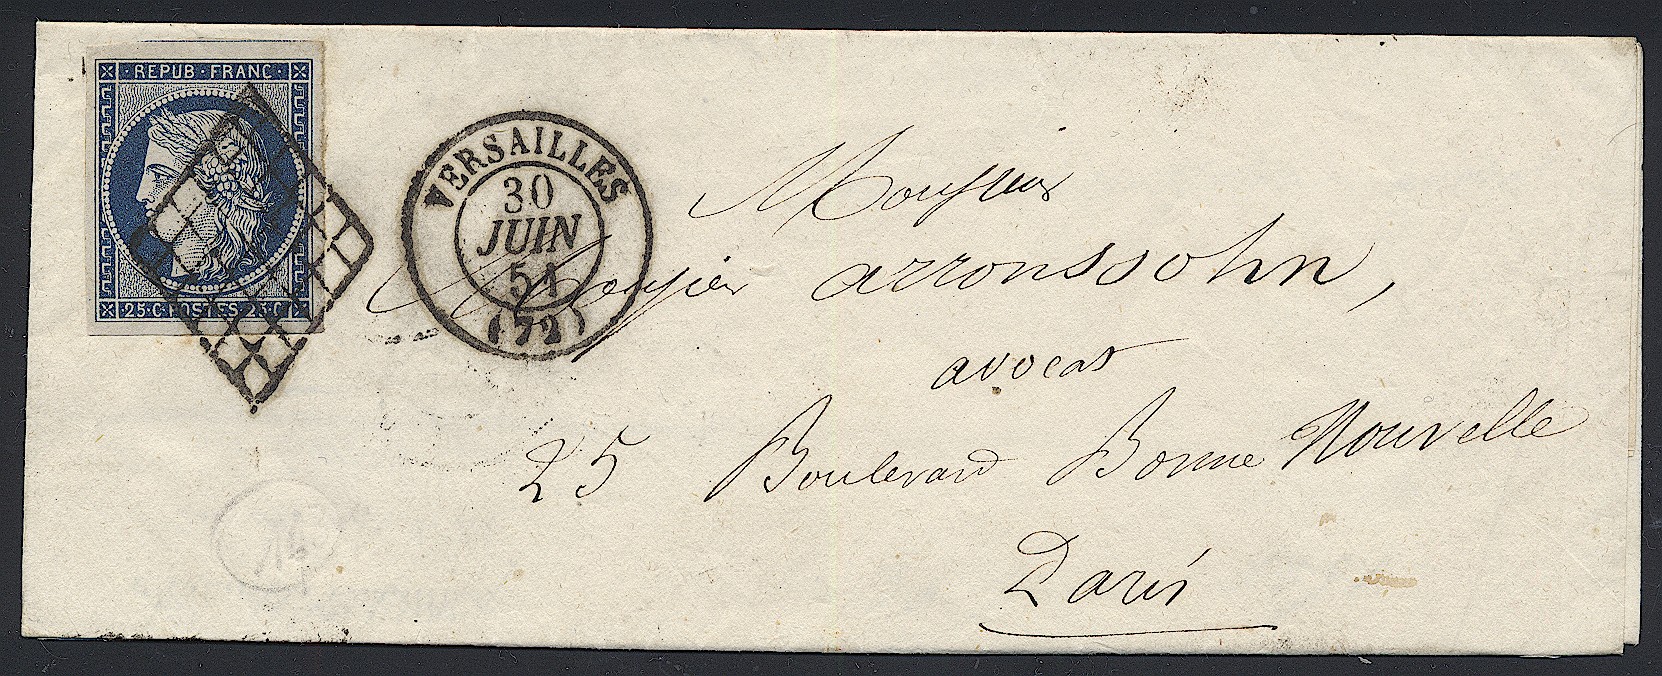 REPUB · FRANC ·
25 · C · POSTES · 25 · C
VERSAILLES
30
JUIN
51
(72)
Monsieur
Monsieur arronssohn,
avocat
25 Boulevard Bonne Nouvelle
Paris